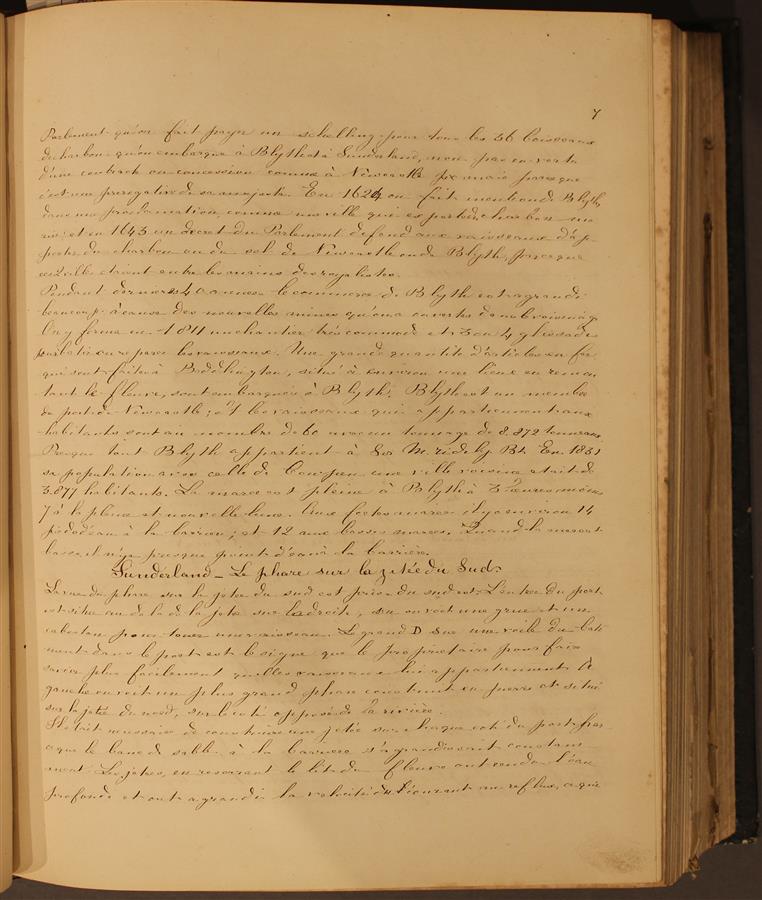 7
Parlement qu'on fait payer un schelling pour tous les 36 boisseaux
de charbon qu'on embarque à Blyth et à Sunderland, non pas en vertu
d'une contrack ou concession comme à Newcastle mais parceque
c'est une prerogative de sa majesté. En 1624 on fait mention de Blyth
dans une proclamation, comme une ville qui exportait charbon
et en 1643 un decret du Parlement defend aux vaisseaux d'ap-
porter du charbon ou du sel de Newcastle ou de Blyth, parceque
ces 2 villes etaient entre les mains des royalistes.
Pendant dernieres 40 annees le commerce de Blyth est agrandi
beaucoup à cause des nouvelles mines qu'on a ouvertes dans le voisinage
On y forma en 1811 un chantier très commode et 3 ou 4 glissades
pour batir ou reparer les vaisseaux. Une grande quantité d'articles en fer
qui sont faites à Bedlington, situé à environ une lieue en remon-
tant le fleuve, sont embarqués à Blyth. Blyth est un membre
du port de Newcastle; et les vaisseaux qui appartiennent aux
habitants sont au nombre de 60 avec un tonnage de 8.872 tonneaux
Presque tout Blyth appartient à Sir M. Ridely Bt. En 1831
sa population avec celle de Cowpen une ville voisine etait de
3.877 habitants. La maree est pleine à Blyth à 3 heures moins
7 à la pleine et nouvelle lune. Aux fortes marees il y a environ 14
pieds d'eau à la barriere; et 12 aux basses marees. Quand la maree est
basse il n'y a presque point d'eau à la barrière.
Sunderland – Le phare sur la jetée du Sud.
La vue du phare sur la jetee du sud est prise du sud est. L'entree du port
est situe au de la de la jetee sur la droite, ou on voit une grue et un
cabestan pour touer un vaisseau. Le grand D sur une voile du bati-
ment dans le port est le signe que le proprietaire pour faire
savoir plus facilement quelles vaisseaux lui appartiennent. A
gauche on voit un plus grand phare construit en pierre et situé
sur la jetée du nord, sur le coté opposé de la riviere.
Il etait necessaire de construire une jetée sur chaque coté du port
que le banc de sable à la barriere s'agrandissait constam-
ment. Les jetees, en resserrant le lit du fleuve ont rendu l'eau
profonde et ont agrandi la velocité du courant au reflux, ce qui